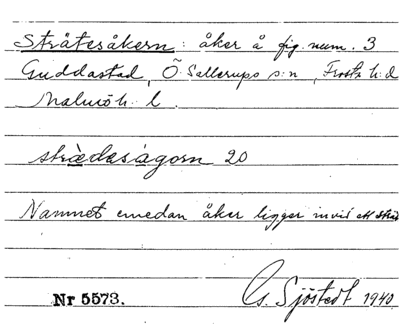 Stråtesåkern: åker å fig. num. 3
Guddastad, Ö. Sallerups s:n, Frosta h:d
Malmöh. l.
strädesågorn 20
Namnet emedan åker ligger invid ett
Nr 5573.
G. Sjöstedt 1940